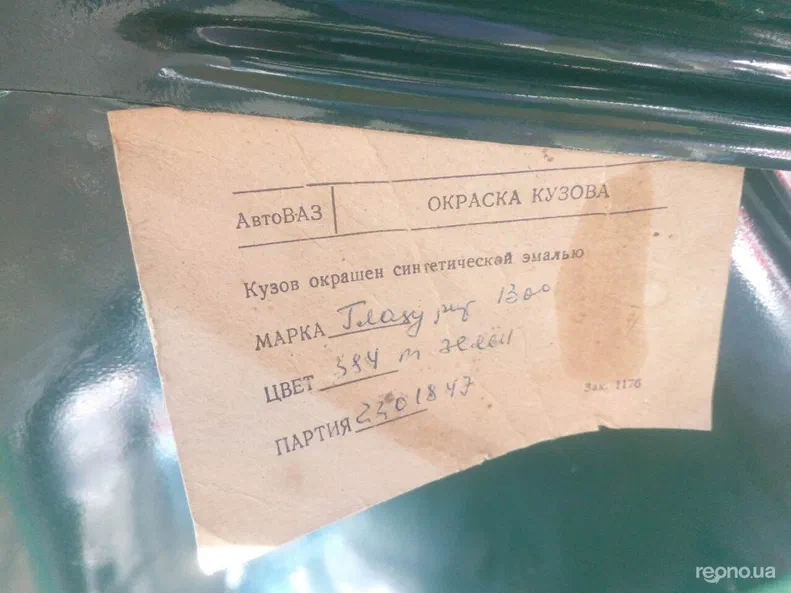 АвтоВАЗ
ОКРАСКА КУЗОВА
Кузов окрашен синтетической эмалью
МАРКА Глазурит 1300
ЦВЕТ 394 т зелён
ПАРТИЯ 2301847
Зак. 1176
reono.ua